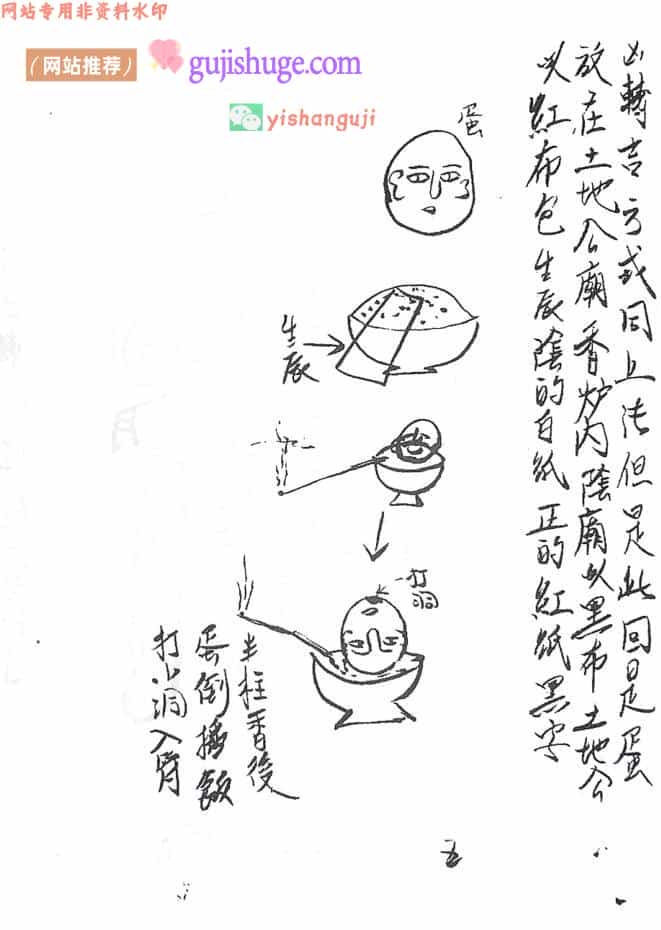 网站专用非资料水印
（网站推荐）
gujishuge.com
yishanguji
凶轉吉方式同上法但是此回是蛋
放在土地公廟香炉內陰廟以黑布土地公
以紅布包生辰陰的白紙正的紅紙黑字
蛋
生辰
打洞
半柱香後
蛋倒插飯
打小洞入
五